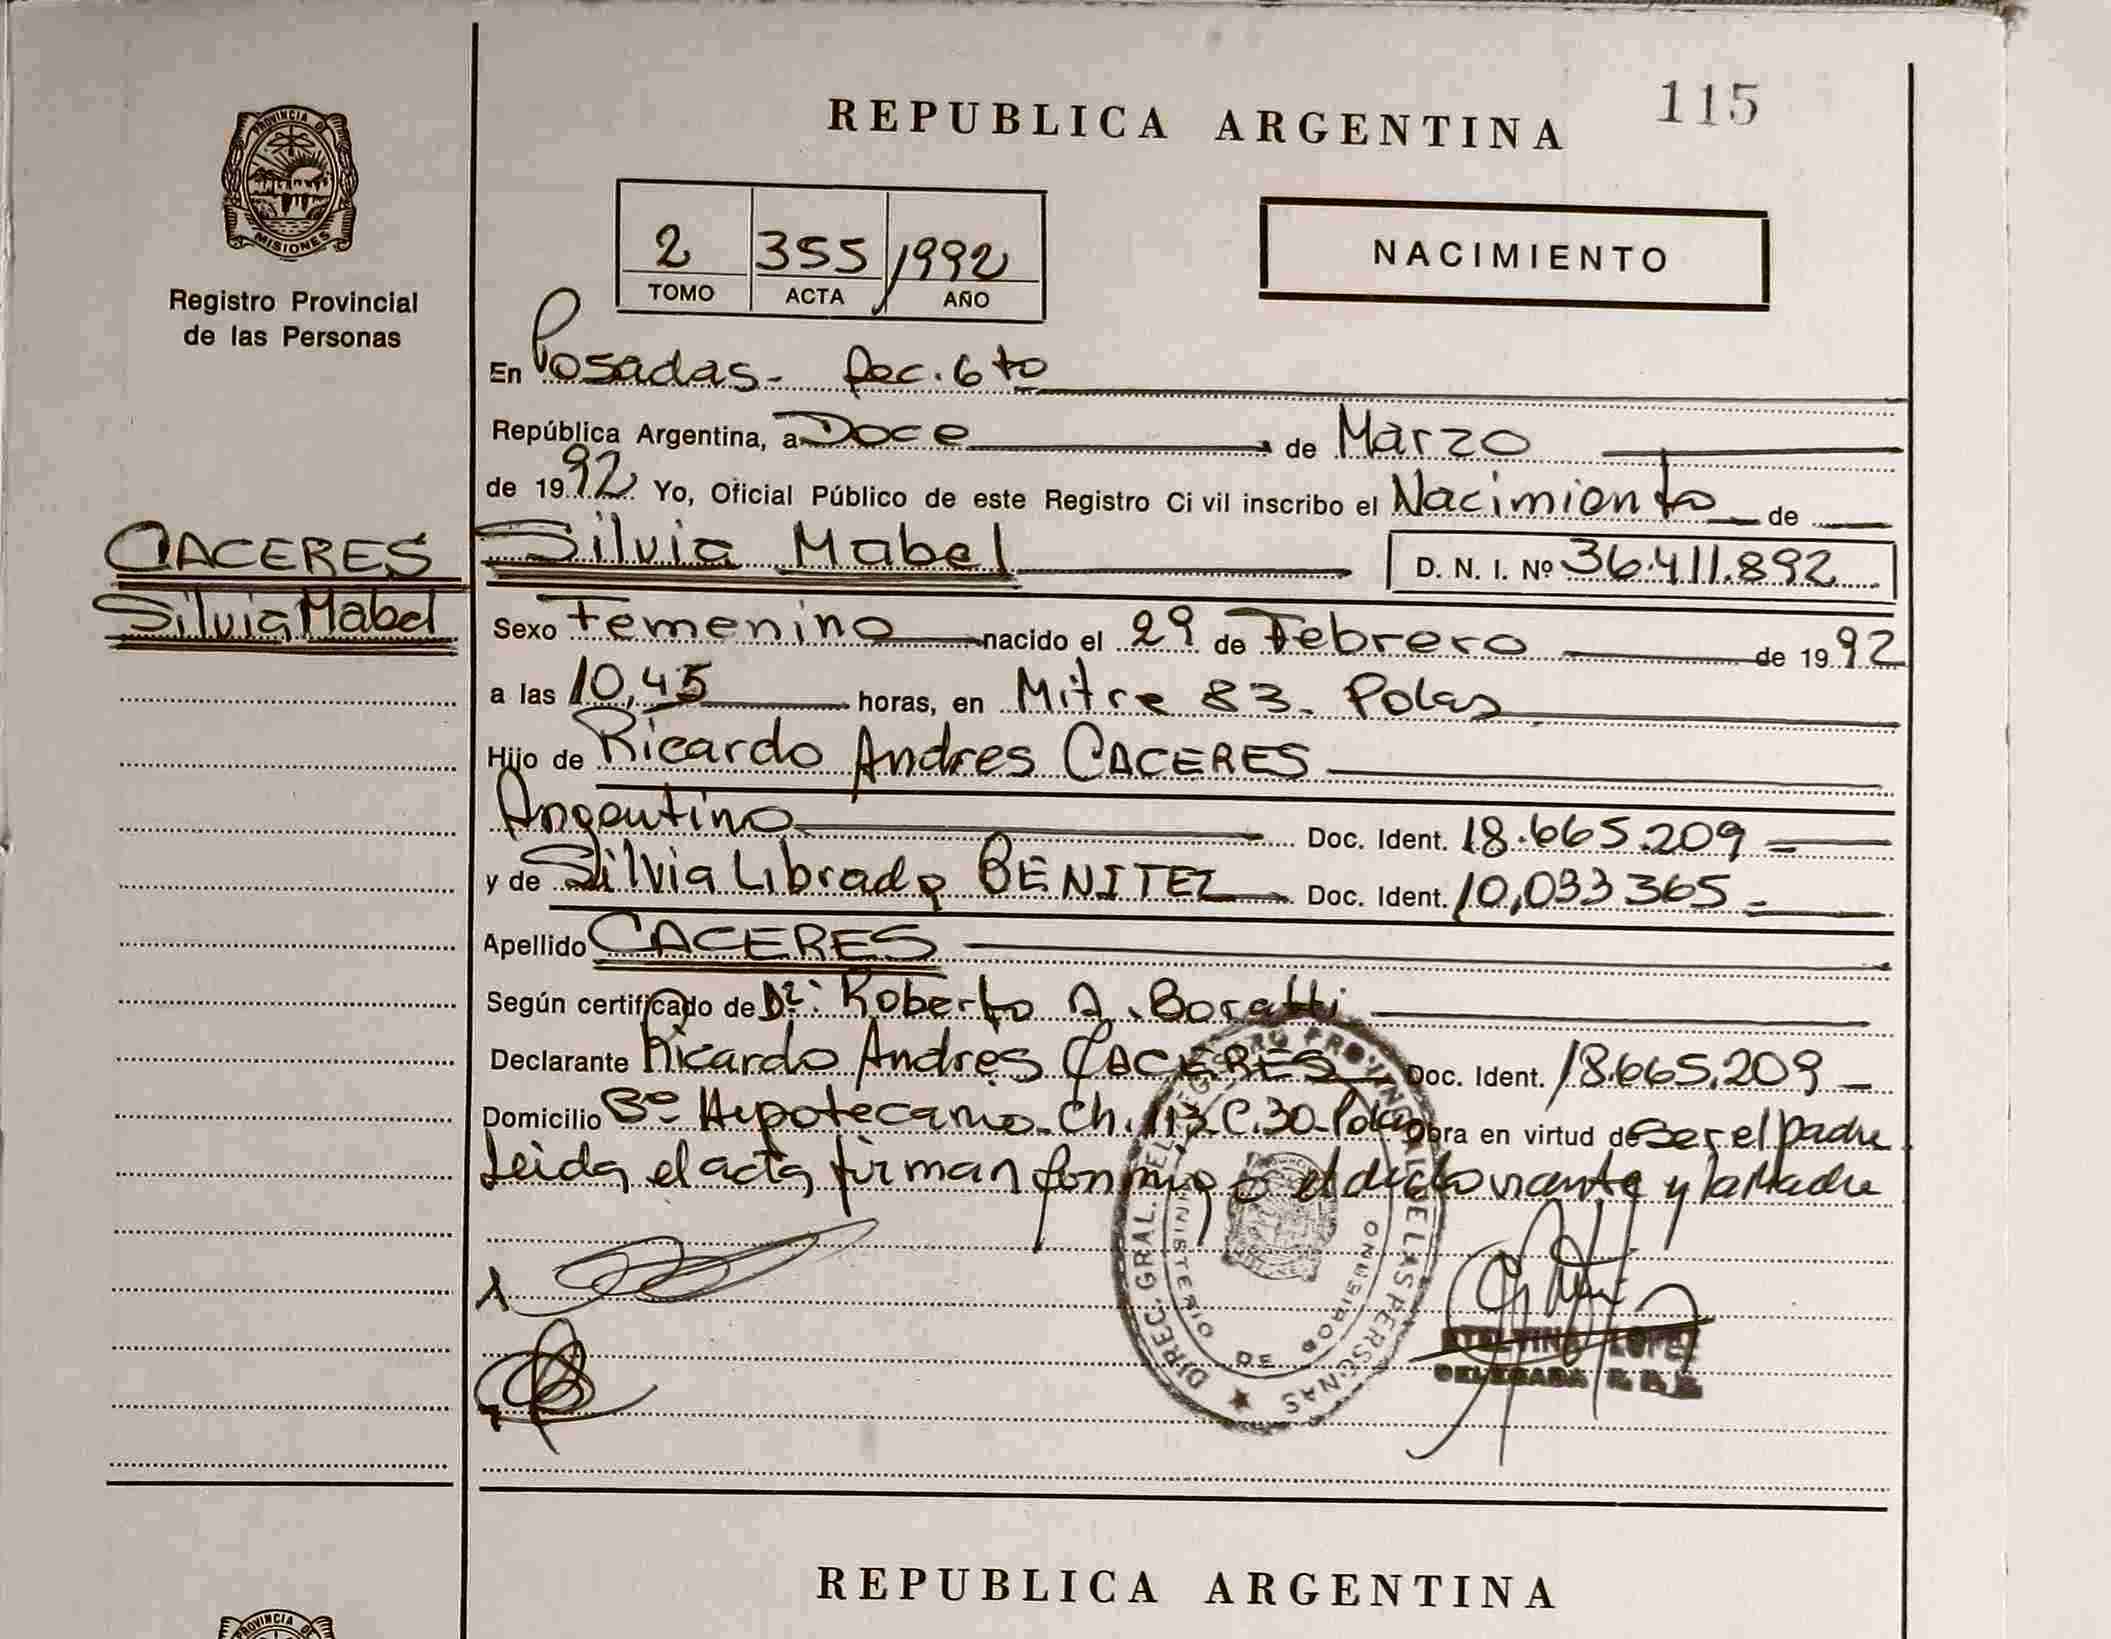 115
REPUBLICA ARGENTINA
PROVINCIA DE
MISIONES
Registro Provincial
de las Personas
2 355 1992
TOMO ACTA AÑO
NACIMIENTO
En Posadas- Sec. 6to
República Argentina, a Doce de Marzo
de 1992 Yo, Oficial Público de este Registro Civil inscribo el Nacimiento de
CACERES
Silvia Mabel
Silvia Mabel D. N. I. Nº 36.411.892
Sexo Femenino nacido el 29 de Febrero de 1992
a las 10,45 horas, en Mitre 83. Pdas
Hijo de Ricardo Andres CACERES
Argentino Doc. Ident. 18.665.209
y de Silvia Librada BENITEZ Doc. Ident. 10,033 365
Apellido CACERES
Según certificado de Dr: Roberto A. Boratti
Declarante Ricardo Andrés CACERES Doc. Ident. 18.665.209
Domicilio Bº Hipotecario Ch. 113 C.30- Pdas Obra en virtud de ser el padre
Leida el acta firman conmigo el declarante y la Madre
DIREC. GRAL. DEL REGISTRO PROVINCIAL DE LAS PERSONAS
MINISTERIO DE GOBIERNO
ETELVINA LOPEZ
DELEGADA R. P. P.
REPUBLICA ARGENTINA
PROVINCIA DE